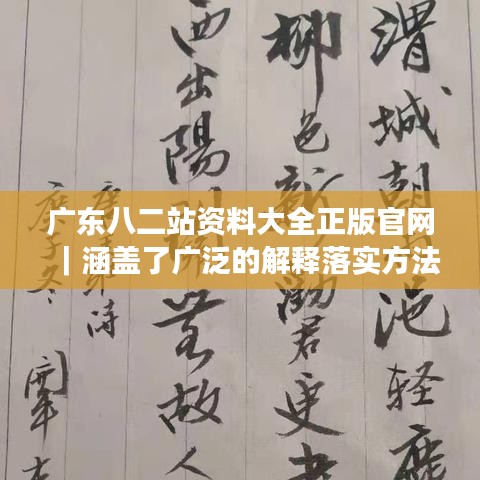 广东八二站资料大全正版官网
｜涵盖了广泛的解释落实方法
渭城朝浥轻
柳色新勸君更
西出陽无故人
诗
庚子冬